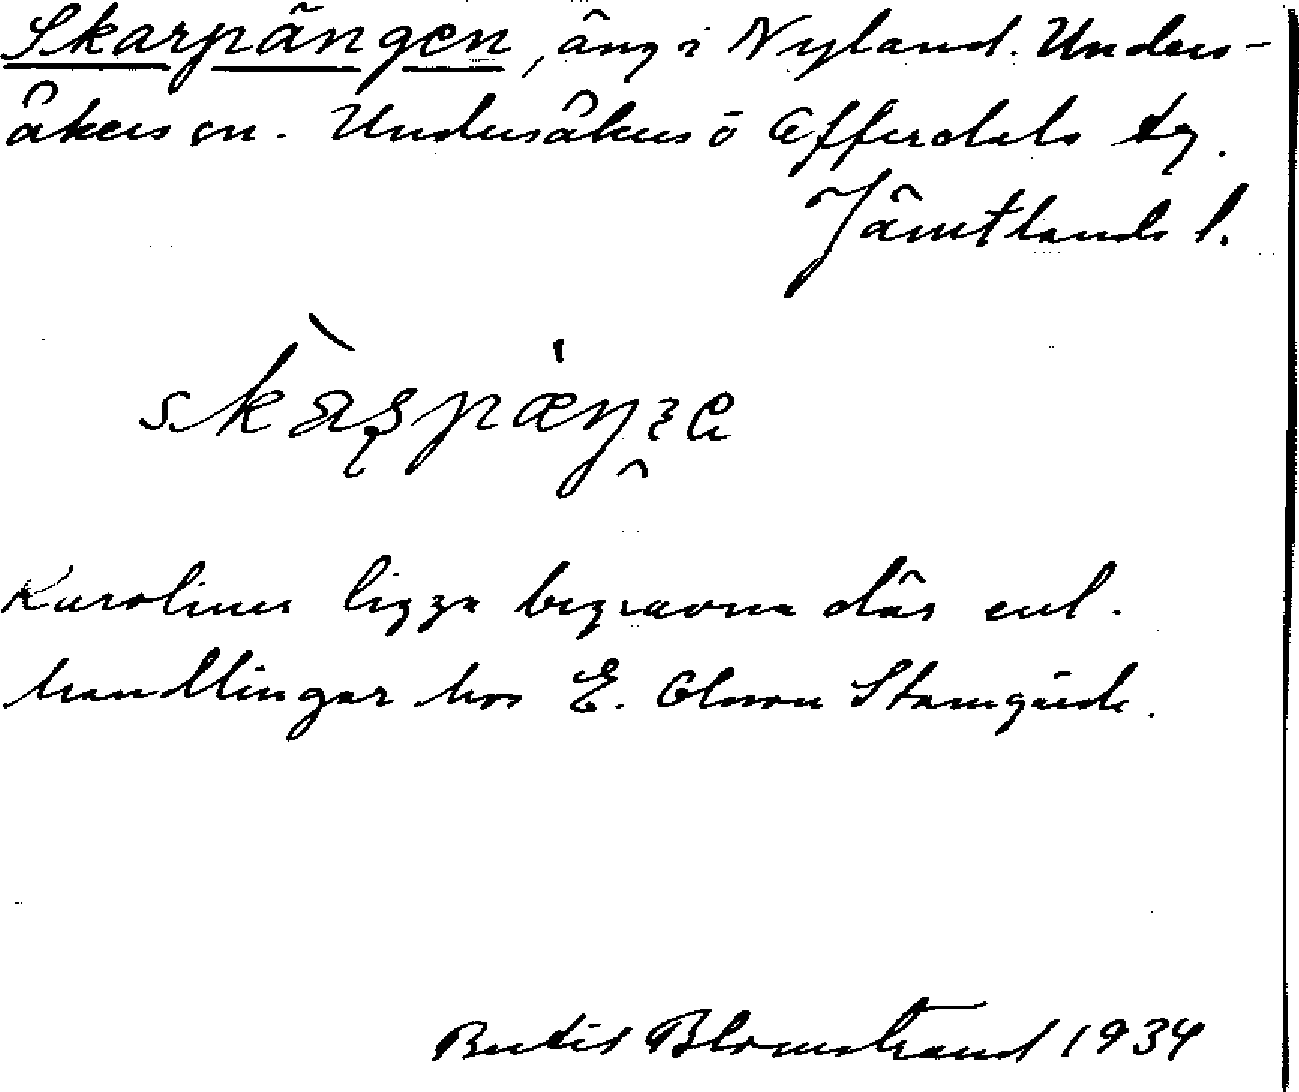 Skarpängen, äng i Nyland. Unders-
åkers sn. Undersåkers o Offerdals tg.
Jämtlands l.
Karoliner ligga begravna där enl.
handlingar hos E. Olsson Stamgärde.
Bertil Blomstrand 1934